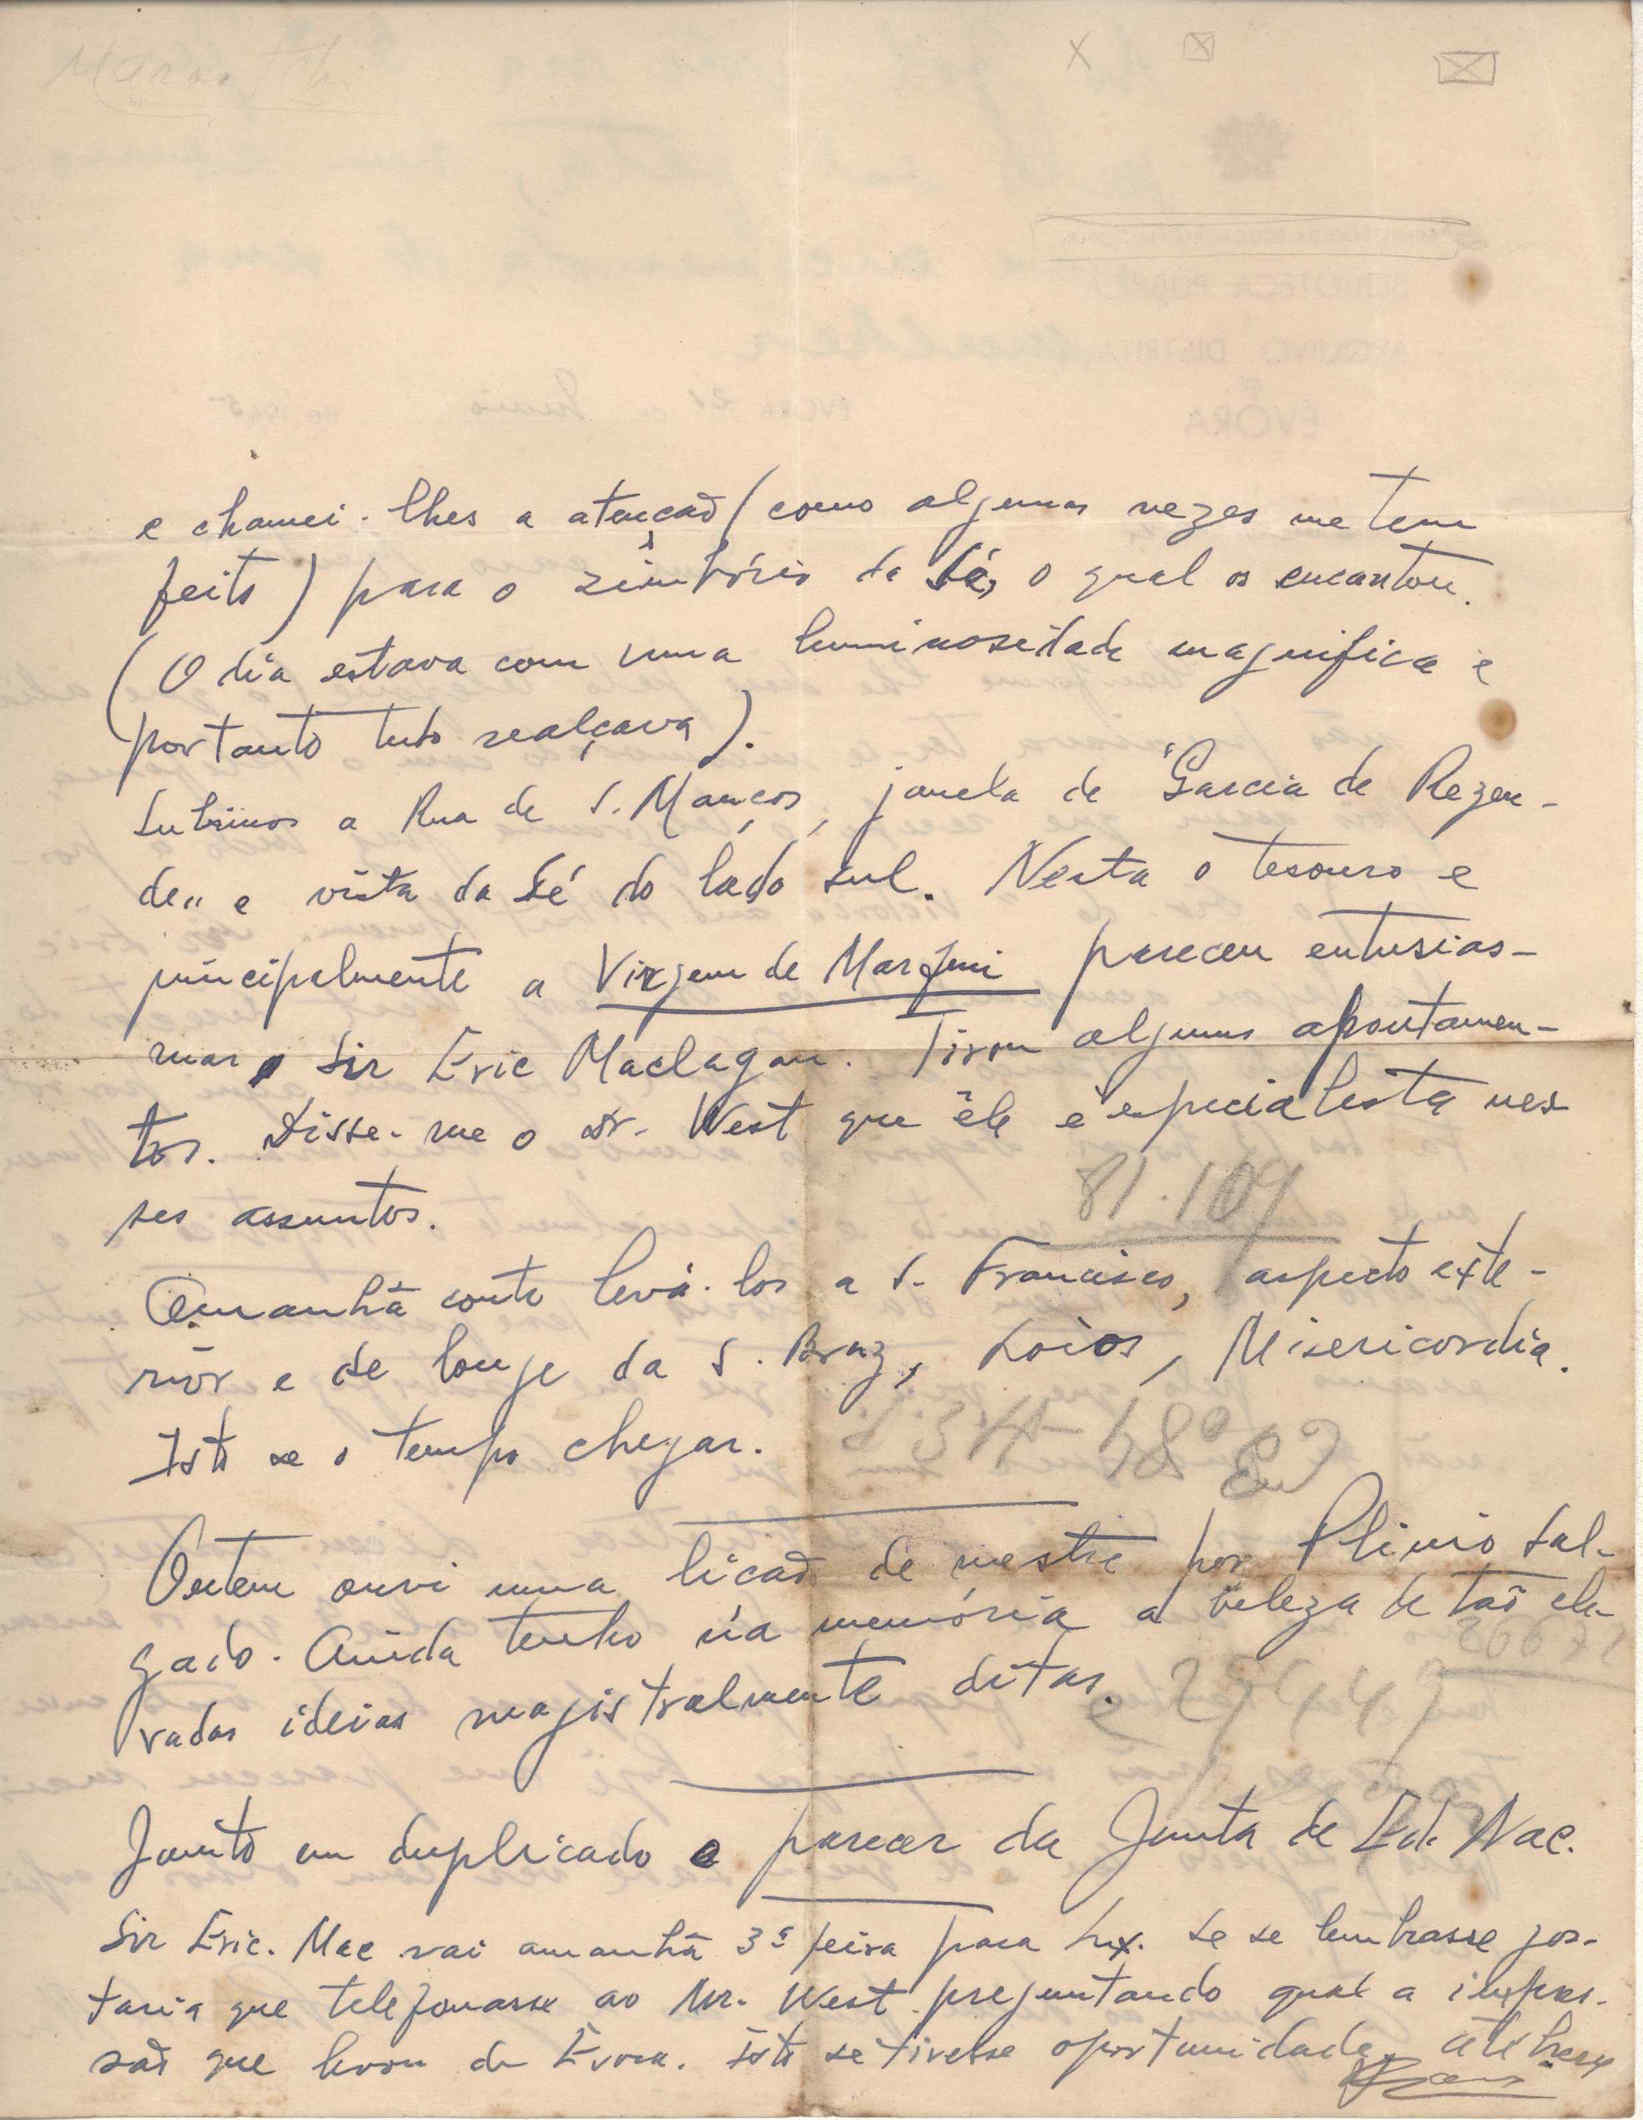 e chamei-lhes a atenção (como algumas vezes me tem
feito) para o zimbório da Sé, o qual os encantou.
(O dia estava com uma luminosidade magnifica e
portanto tudo realçava).
Subimos a Rua de S. Manços, janela de "Garcia de Rezen-
de" e vista da Sé do lado sul. Nesta o tesouro e
principalmente a Virgem de Marfim pareceu entusias-
mar o Sir Eric Maclagan. Tirou algumas apontamen-
tos. Disse-me o Dr. West que êle é especialista nes-
ses assuntos.
81.109
Amanhã conto levá-los a S. Francisco, aspecto exte-
riôr e de longe da S. Braz, Loios, Misericordia.
Isto se o tempo chegar.
Ontem ouvi uma licão de mestre por Plinio Sal-
gado. Ainda tenho na memória a beleza de tão ele-
26671
vadas ideias magistralmente ditas.
Junto em duplicado o parecer da Junta de Ed. Nac.
Sir Eric. Mac vai amanhã 3ª feira para Lx. Se se lembrasse gos-
taria que telefonasse ao Mr. West preguntando qual a impres-
são que levou de Évora. Isto se tivesse oportunidade. até breve